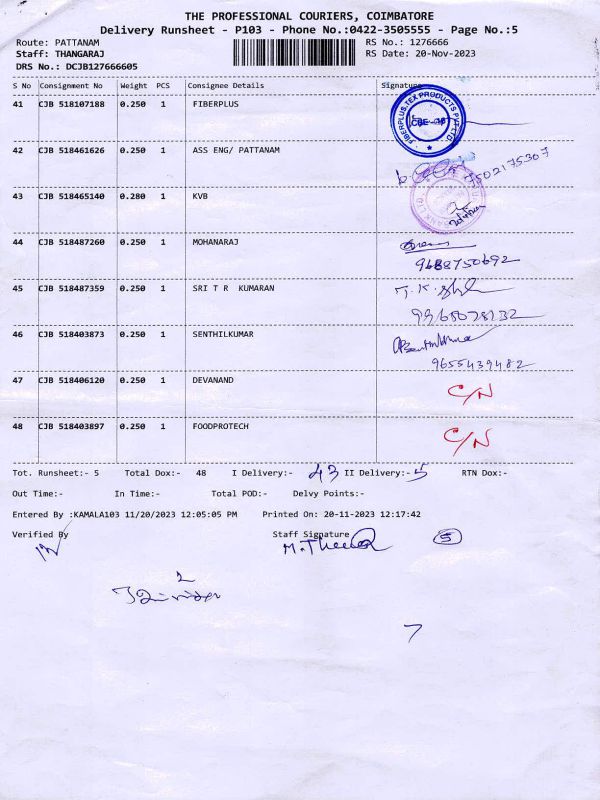 THE PROFESSIONAL COURIERS, COIMBATORE
Delivery Runsheet - P103 - Phone No.:0422-3505555 - Page No.:5
Route: PATTANAM RS No.: 1276666
Staff: THANGARAJ RS Date: 20-Nov-2023
DRS No.: DCJB127666605
S No Consignment No Weight PCS Consignee Details Signature
41 CJB 518107188 0.250 1 FIBERPLUS
FIBERPLUS TEX PRODUCTS PVT.LTD.
42 CJB 518461626 0.250 1 ASS ENG/ PATTANAM
43 CJB 518465140 0.280 1 KVB
44 CJB 518487260 0.250 1 MOHANARAJ
9688750692
45 CJB 518487359 0.250 1 SRI T R KUMARAN
46 CJB 518403873 0.250 1 SENTHILKUMAR
9655439482
47 CJB 518406120 0.250 1 DEVANAND C/N
48 CJB 518403897 0.250 1 FOODPROTECH C/N
Tot. Runsheet:- 5 Total Dox:- 48 I Delivery:- 43 II Delivery:- 5 RTN Dox:-
Out Time:- In Time:- Total POD:- Delvy Points:-
Entered By :KAMALA103 11/20/2023 12:05:05 PM Printed On: 20-11-2023 12:17:42
Verified By Staff Signature 5
2
7